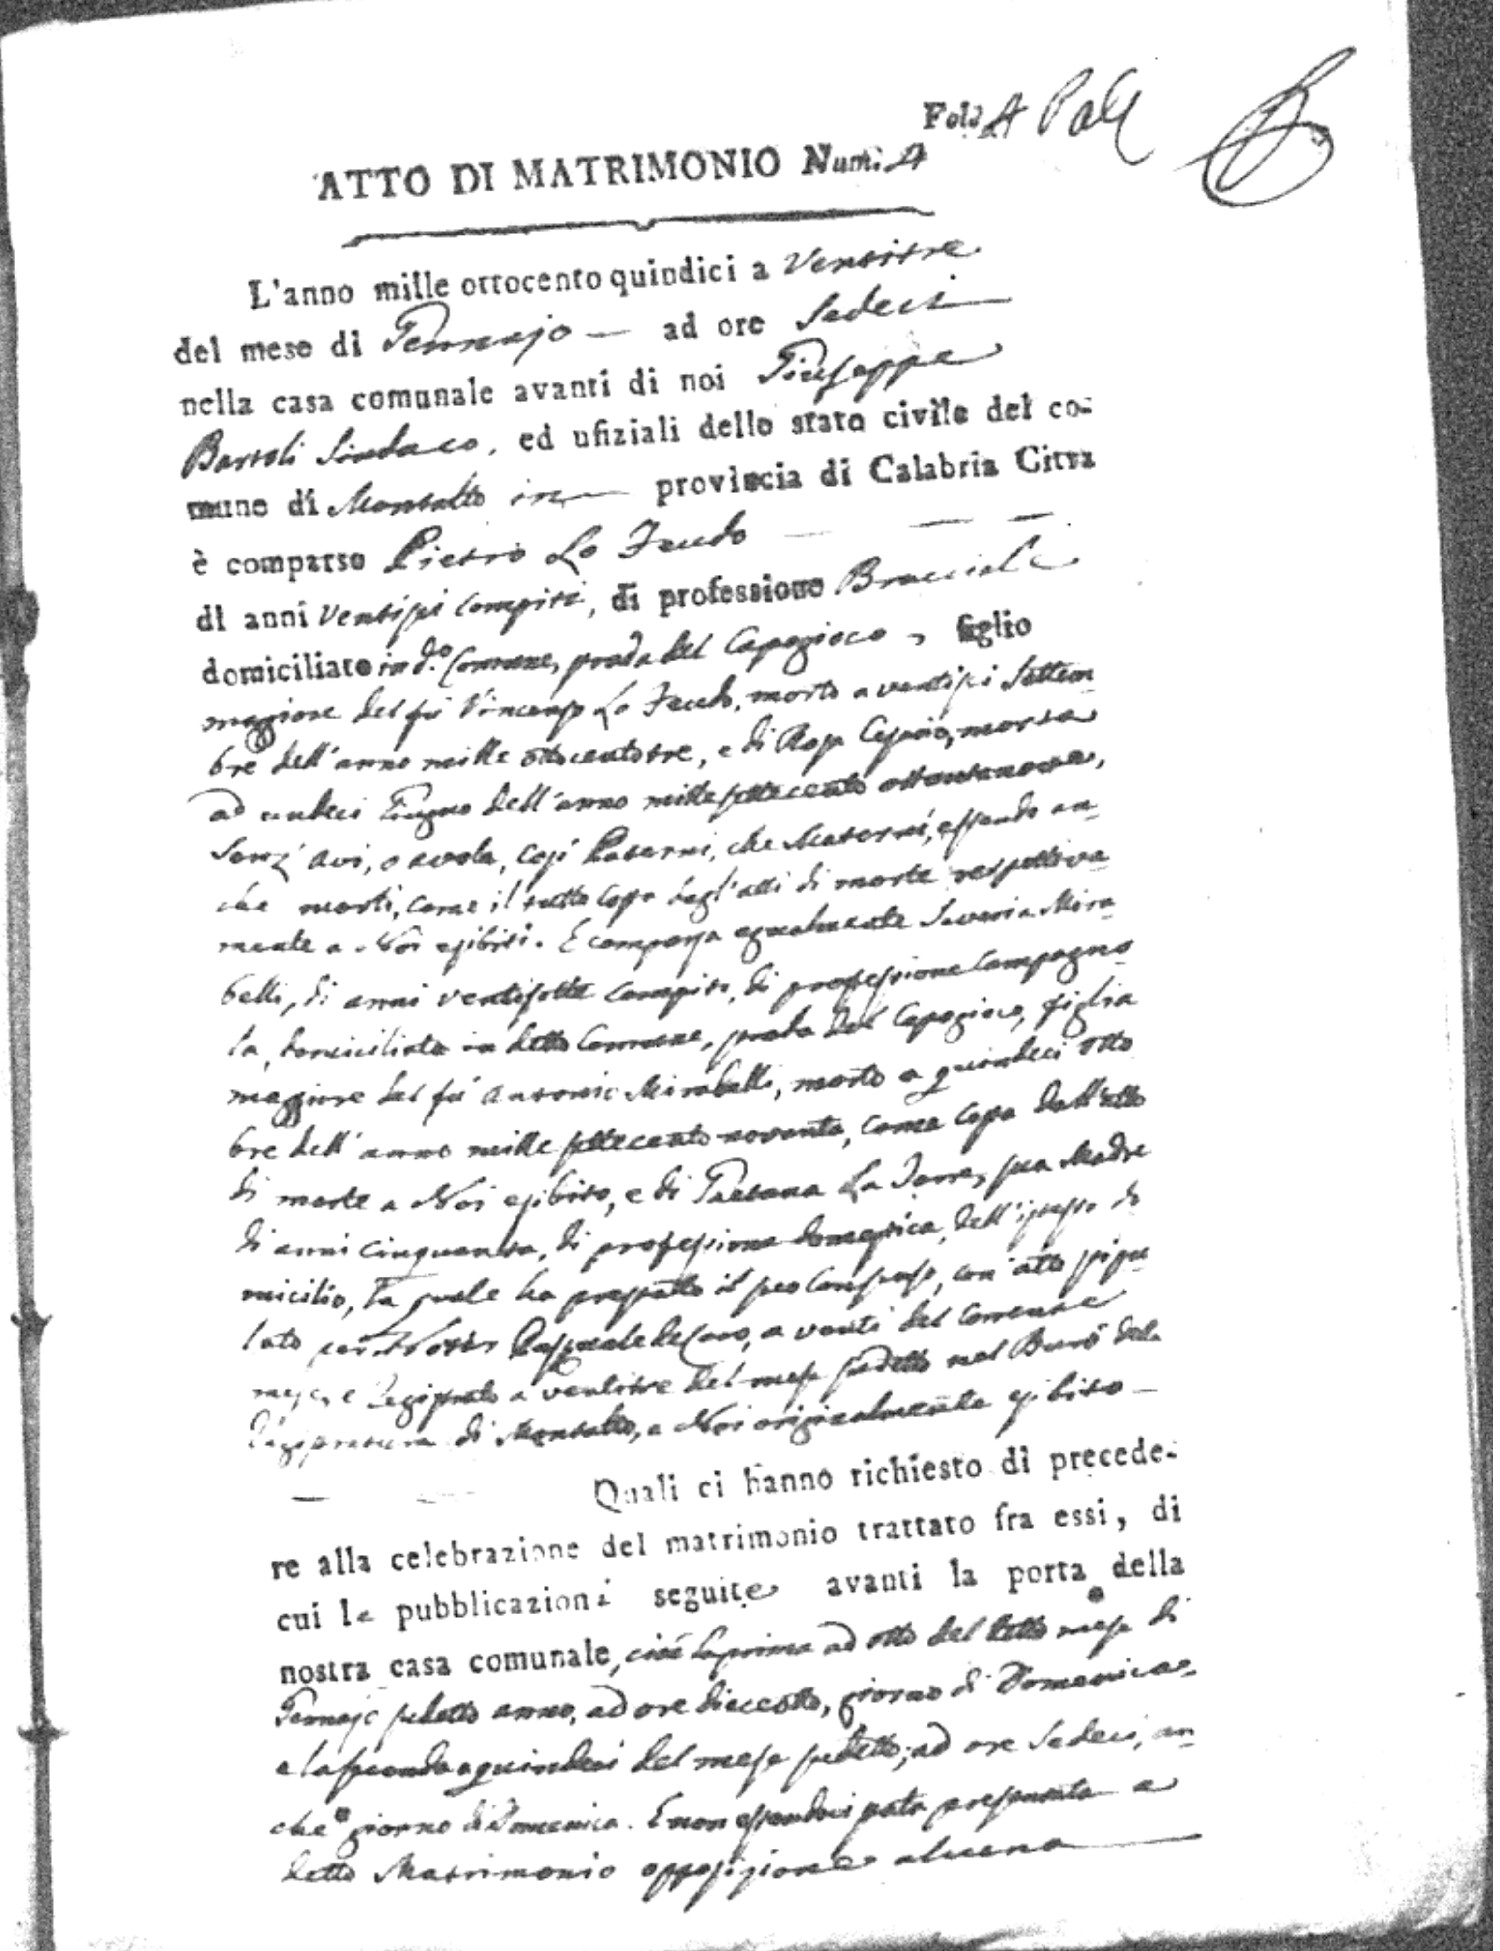 Fol. 4
ATTO DI MATRIMONIO Num. 4
L'anno mille ottocento quindici a Ventitre
del mese di Gennajo — ad ore Sedeci —
nella casa comunale avanti di noi Giuseppe
Bartoli Sindaco, ed ufiziali dello stato civile del co-
mune di Montalto in — provincia di Calabria Citra
è comparso Pietro Lo Feudo — — —
di anni Ventisei compiti, di professione Bracciale
domiciliato in d.o Comune, strada del Capogioco, figlio
maggiore del fù Vincenzo Lo Feudo, morto a ventisei Settem
bre dell'anno mille ottocentotre, e di Rosa morta
ad undeci Giugno dell'anno mille settecento ottantanove,
senz' avi, o avola, così Paterni, che Materni, essendo an-
che morti, come il tutto costa dagl'atti di morte respettiva
mente a Noi esibiti. E comparsa egualmente Saveria Mira-
belli, di anni ventisette compiti, di professione Campagno
la, domiciliata in detto Comune, strada del Capogioco, figlia
maggiore del fù Antonio Mirabelli, morto a quindeci otto
bre dell'anno mille settecento novanta, come costa dall'atto
di morte a Noi esibito, e di Gaetana La Torre, sua Madre
di anni cinquanta, di professione domestica, dell'istesso do
micilio, la quale ha prestato il suo consenso, con atto stipu
lato per Notar Pasquale de Caro, a venti del corrente
mese, e Registrato a ventitre del mese sudetto nel Burò della
Registratura di Montalto, a Noi originalmente esibito —
— Quali ci hanno richiesto di precede-
re alla celebrazione del matrimonio trattato fra essi, di
cui le pubblicazioni seguite avanti la porta della
nostra casa comunale, cioè la prima ad otto del detto mese di
Gennajo sudetto anno, ad ore dieceotto, giorno di Domenica
e la seconda a quindeci del mese sudetto, ad ore Sedeci, an-
che giorno di Domenica. E non essendoci stata presentata a
detto Matrimonio opposizione alcuna —